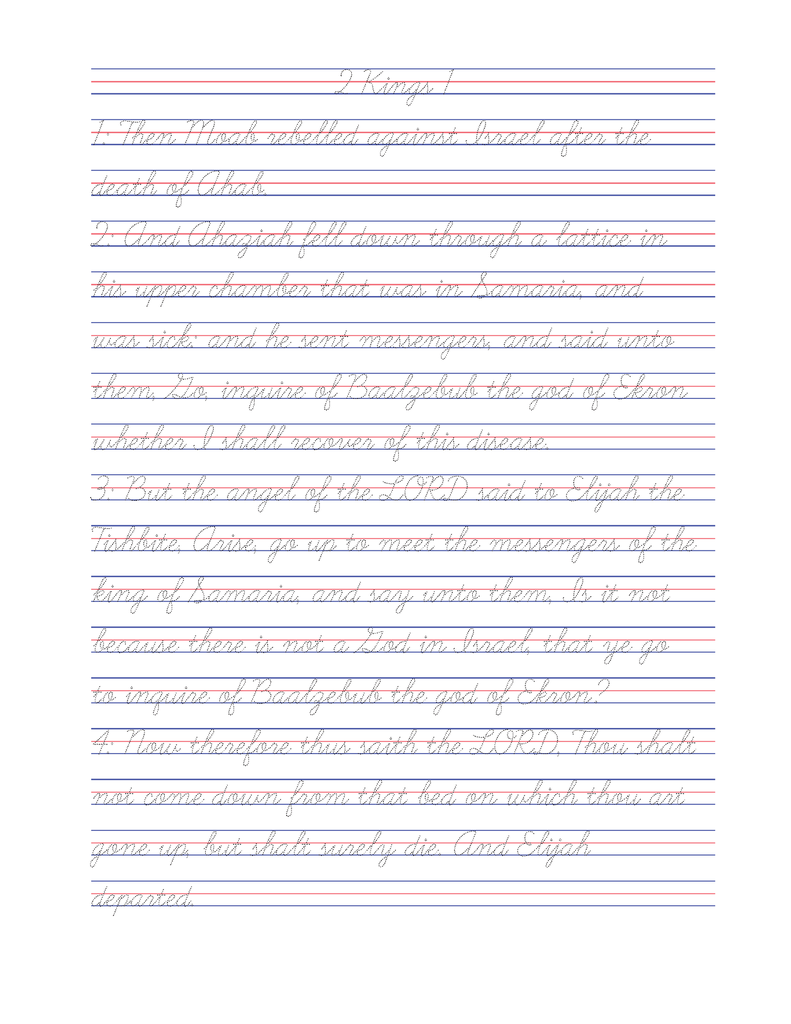 2 Kings 1
1: Then Moab rebelled against Israel after the
death of Ahab.
2: And Ahaziah fell down through a lattice in
his upper chamber that was in Samaria, and
was sick: and he sent messengers, and said unto
them, Go, inquire of Baalzebub the god of Ekron
whether I shall recover of this disease.
3: But the angel of the LORD said to Elijah the
Tishbite, Arise, go up to meet the messengers of the
king of Samaria, and say unto them, Is it not
because there is not a God in Israel, that ye go
to inquire of Baalzebub the god of Ekron?
4: Now therefore thus saith the LORD, Thou shalt
not come down from that bed on which thou art
gone up, but shalt surely die. And Elijah
departed.